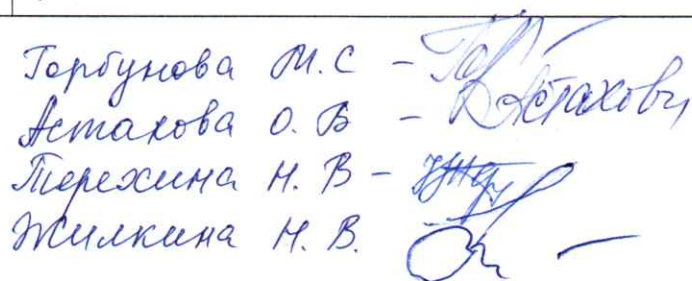 Горбунова М.С –
Астахова О.Б – Астахову
Терехина Н.В –
Жилкина Н.В. –